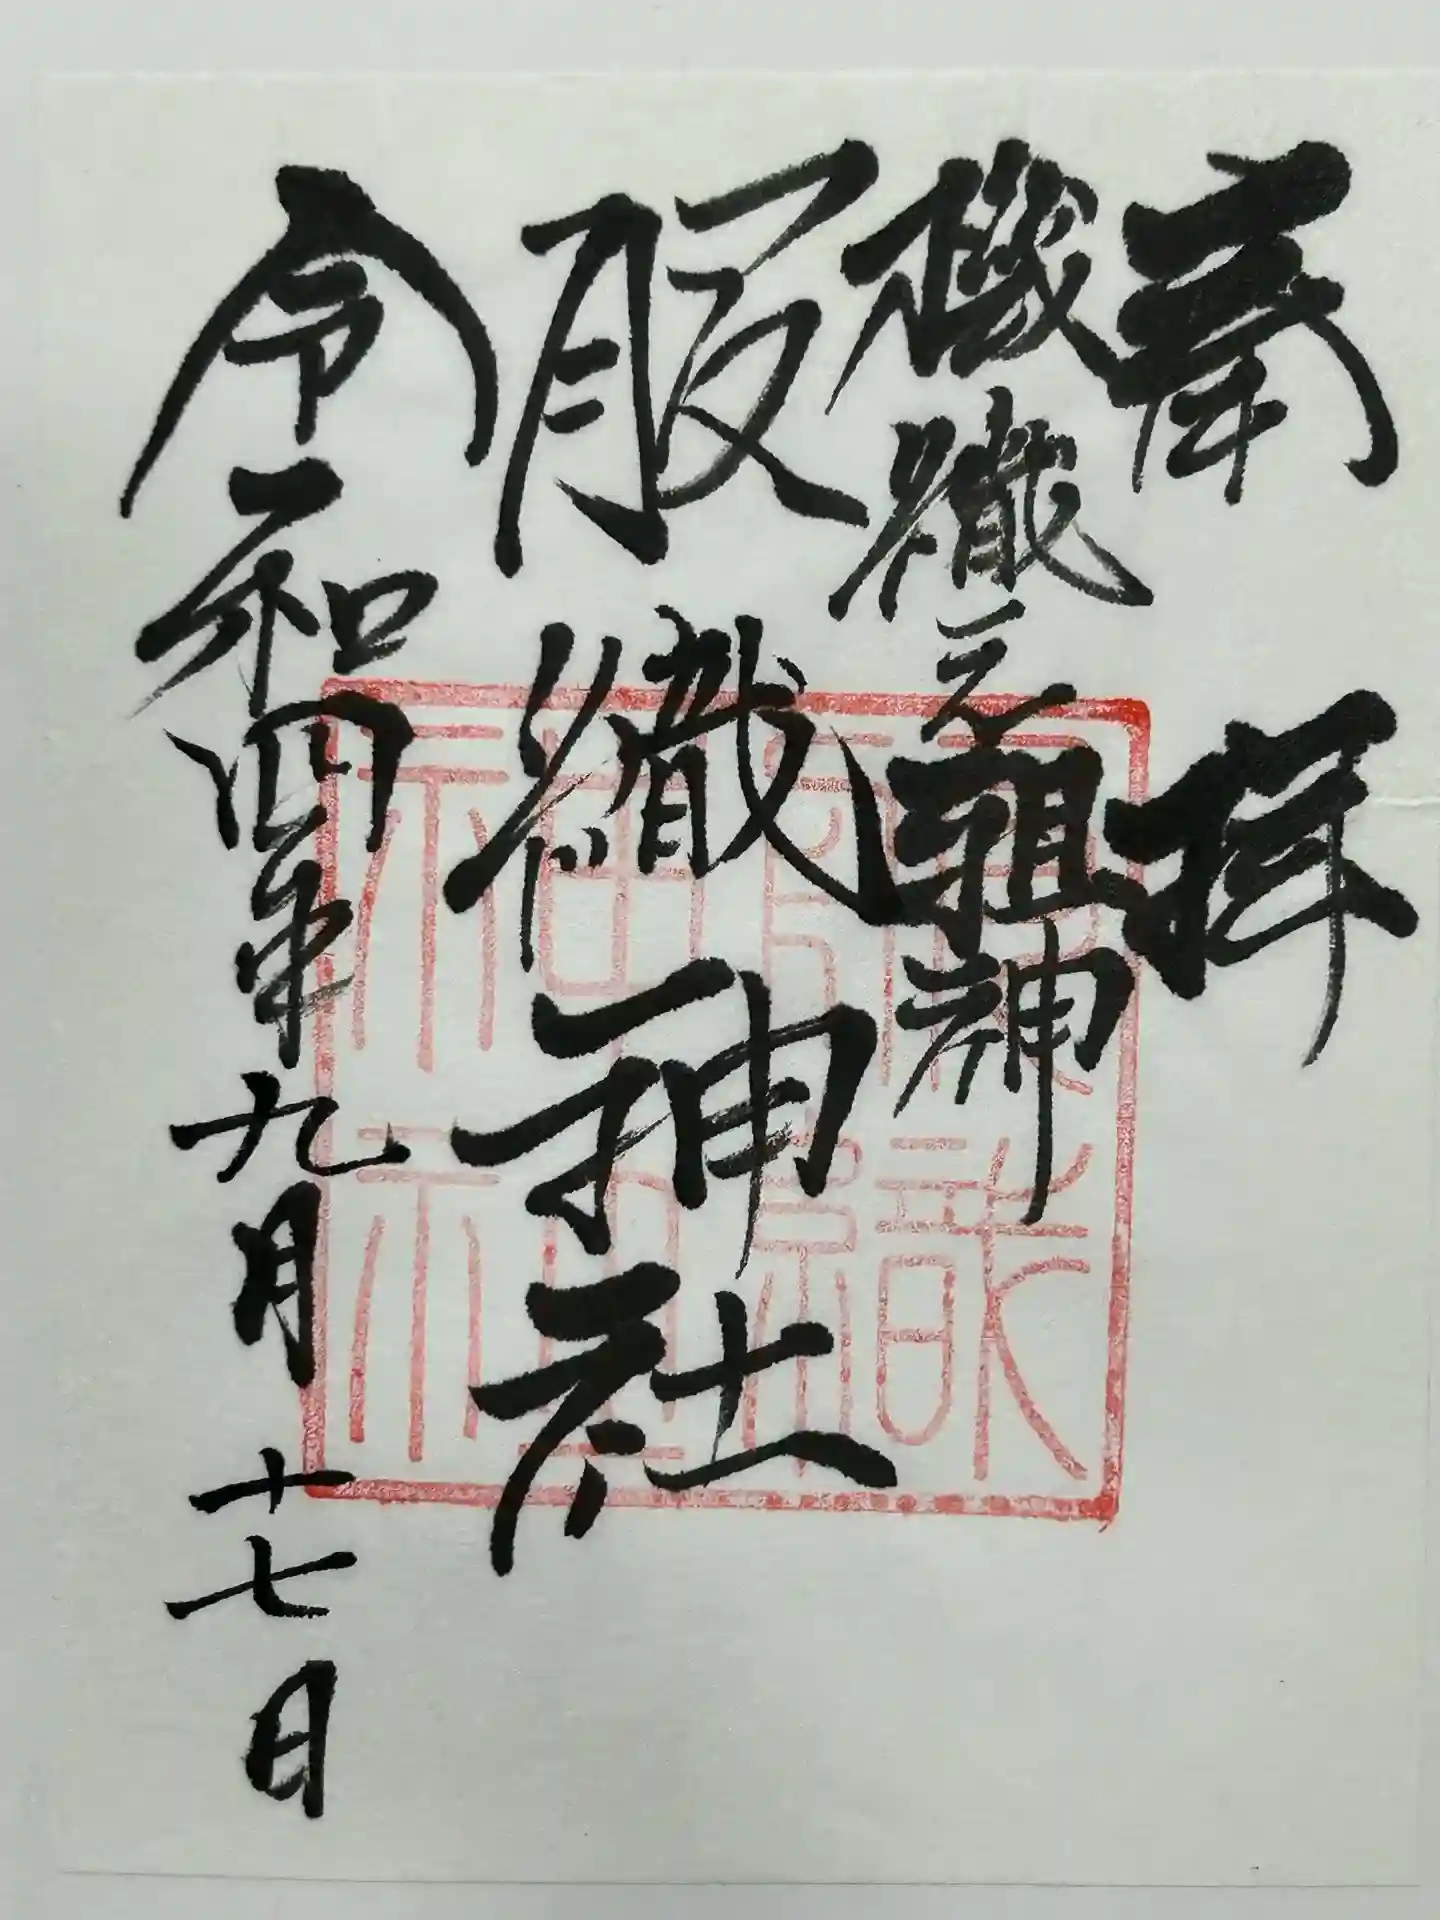 奉拝
機織元祖神
服織神社
令和四年九月十七日
服織神社